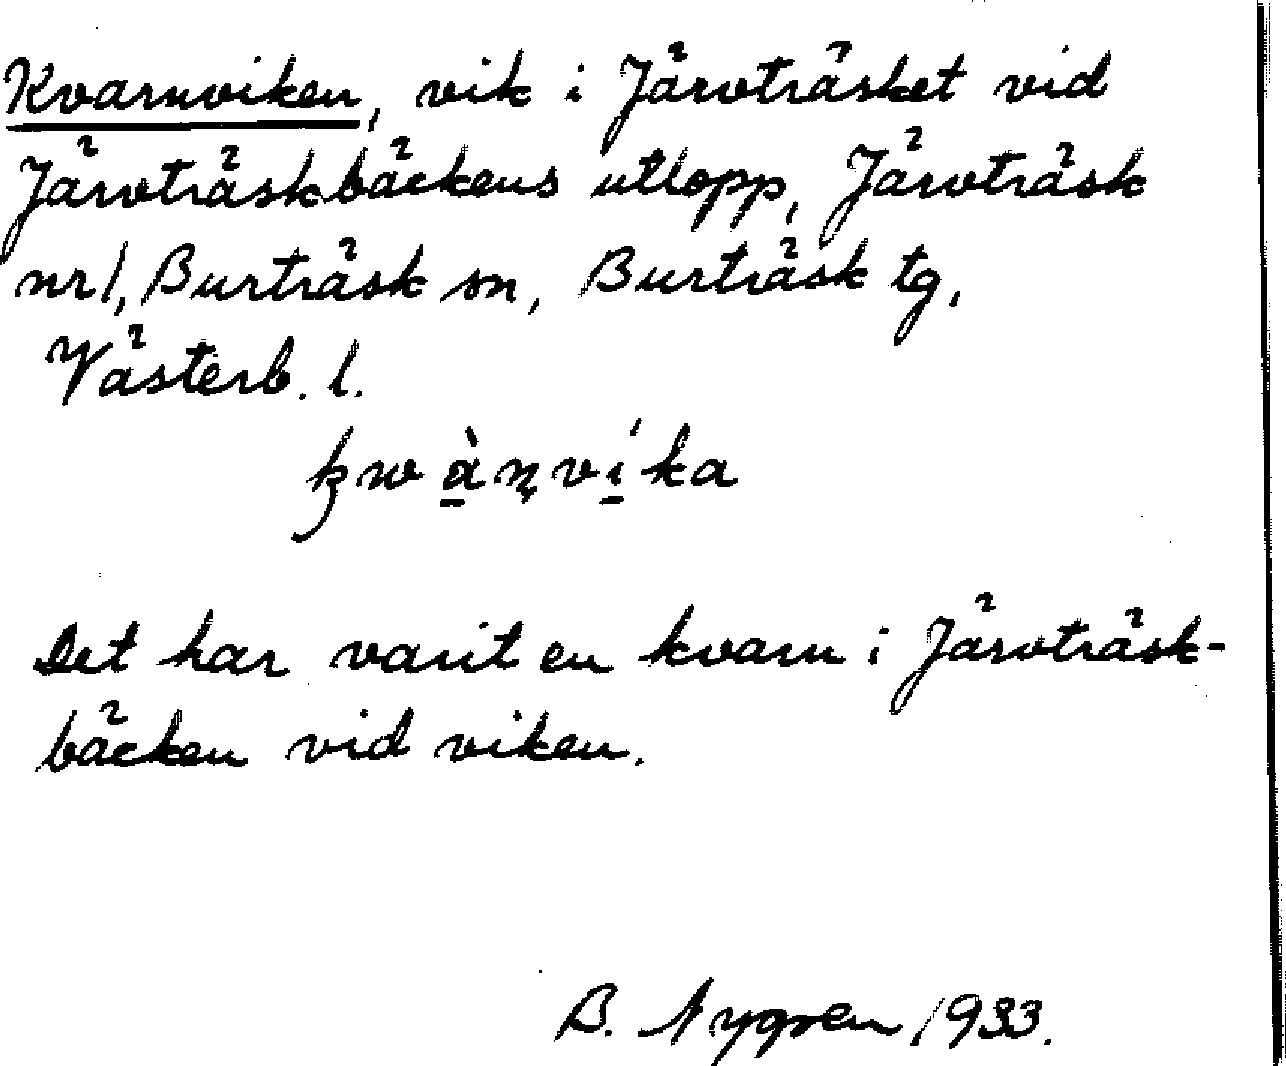 Kvarnviken, vik i Järvträsket vid
Järvträskbäckens utlopp, Järvträsk
nr 1, Burträsk sn, Burträsk tg,
Västerb. l.
kwàṇvíka
Det har varit en kvarn i Järvträsk-
bäcken vid viken.
B. Nygren 1933.